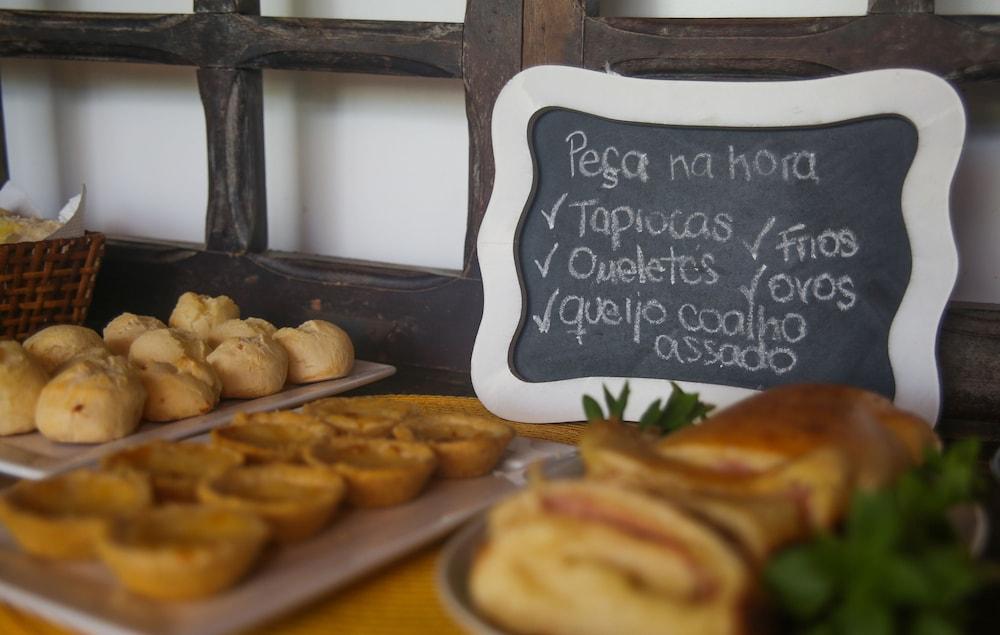 Peça na hora
✓ Tapiocas
✓ Omeletes
✓ queijo coalho
assado
✓ Frios
✓ ovos